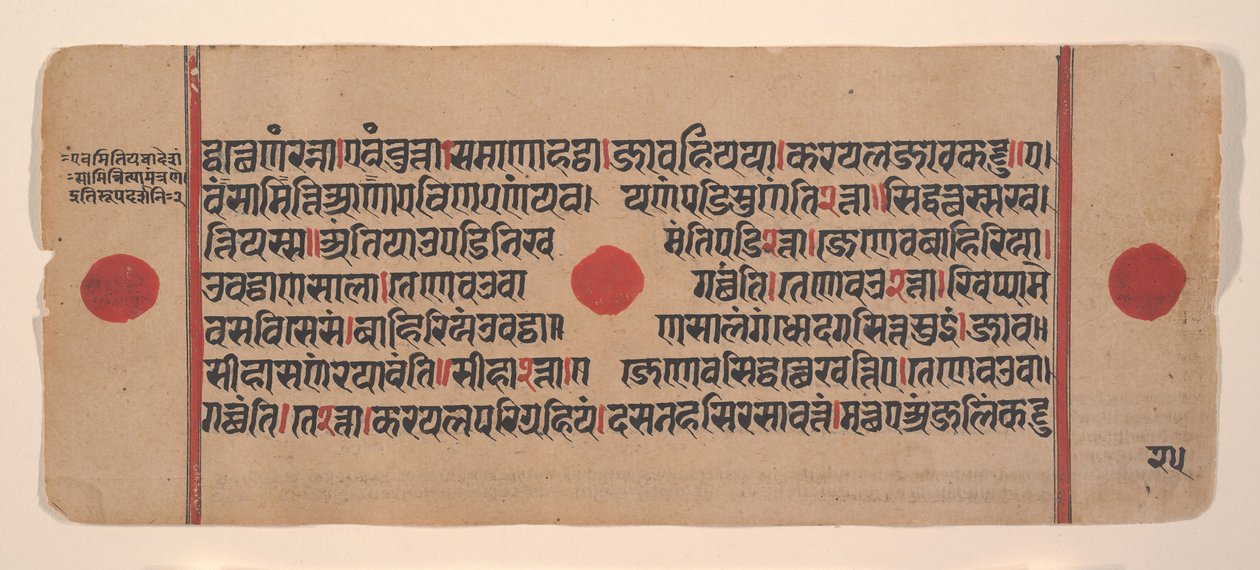 =एवमितियथादेशं
=स्वामिन्नित्यामंत्रणे।
इतिरूपदर्शने=२
द्धत्थेणं रन्ना।एवं वुत्ता।समाणा हट्ठा।जाव हियया।करयल जाव कट्टु॥ए।
वं सामित्ति आणाए विणएणं यव। यणं पडिसुणंति २ त्ता॥सिद्धत्थस्स ख।
त्तियस्स॥अंतियाउ पडिनिख मंति पडि २ त्ता।जेणेव बाहिरिया।
उवट्ठाणसाला।तेणेव उवा गच्छंति।तेणेव उ २ त्ता।खिप्पामे
व सविसेसं।बाहिरियं उवट्ठा॥ णसालं गंधोदगसित्तसुइं।जाव॥
सीहासणं रयावंति॥सीहा २ त्ता।ए जेणेव सिद्धत्थे खत्तिए।तेणेव उवा।
गच्छंति।ते २ त्ता।करयलपरिग्रहियं।दसनहसिरसावत्तं।मत्थए अंजलिं कट्टु
२५